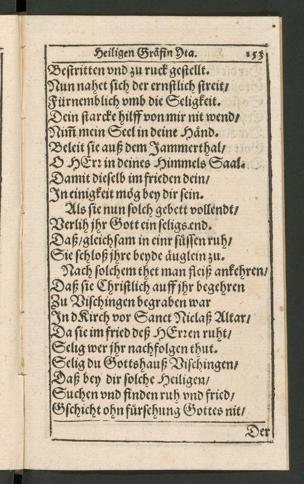 Heiligen Gräfin Yta. 153
Bestritten vnd zu ruck gestellt.
Nun nahet sich der ernstlich streit/
Fürnemblich vmb die Seligkeit.
Dein starcke hilff von mir nit wend/
Nim̃ mein Seel in deine Händ.
Beleit sie auß dem Jammerthal/
O HErr in deines Himmels Saal.
Damit dieselb im frieden dein/
In einigkeit mög bey dir sein.
Als sie nun solch gebett vollendt/
Verlih jhr Gott ein seligs end.
Daß/ gleichsam in einr süssen ruh/
Sie schloß jhre beyde äuglein zu.
Nach solchem thet man fleiß ankehren/
Daß sie Christlich auff jhr begehren
Zu Vischingen begraben war
In d Kirch vor Sanct Niclaß Altar/
Da sie im fried deß HErren ruht/
Selig wer jhr nachfolgen thut.
Selig du Gottshauß Vischingen/
Daß bey dir solche Heiligen/
Suchen vnd finden ruh vnd fried/
Gschicht ohn fürsehung Gottes nit/
Der